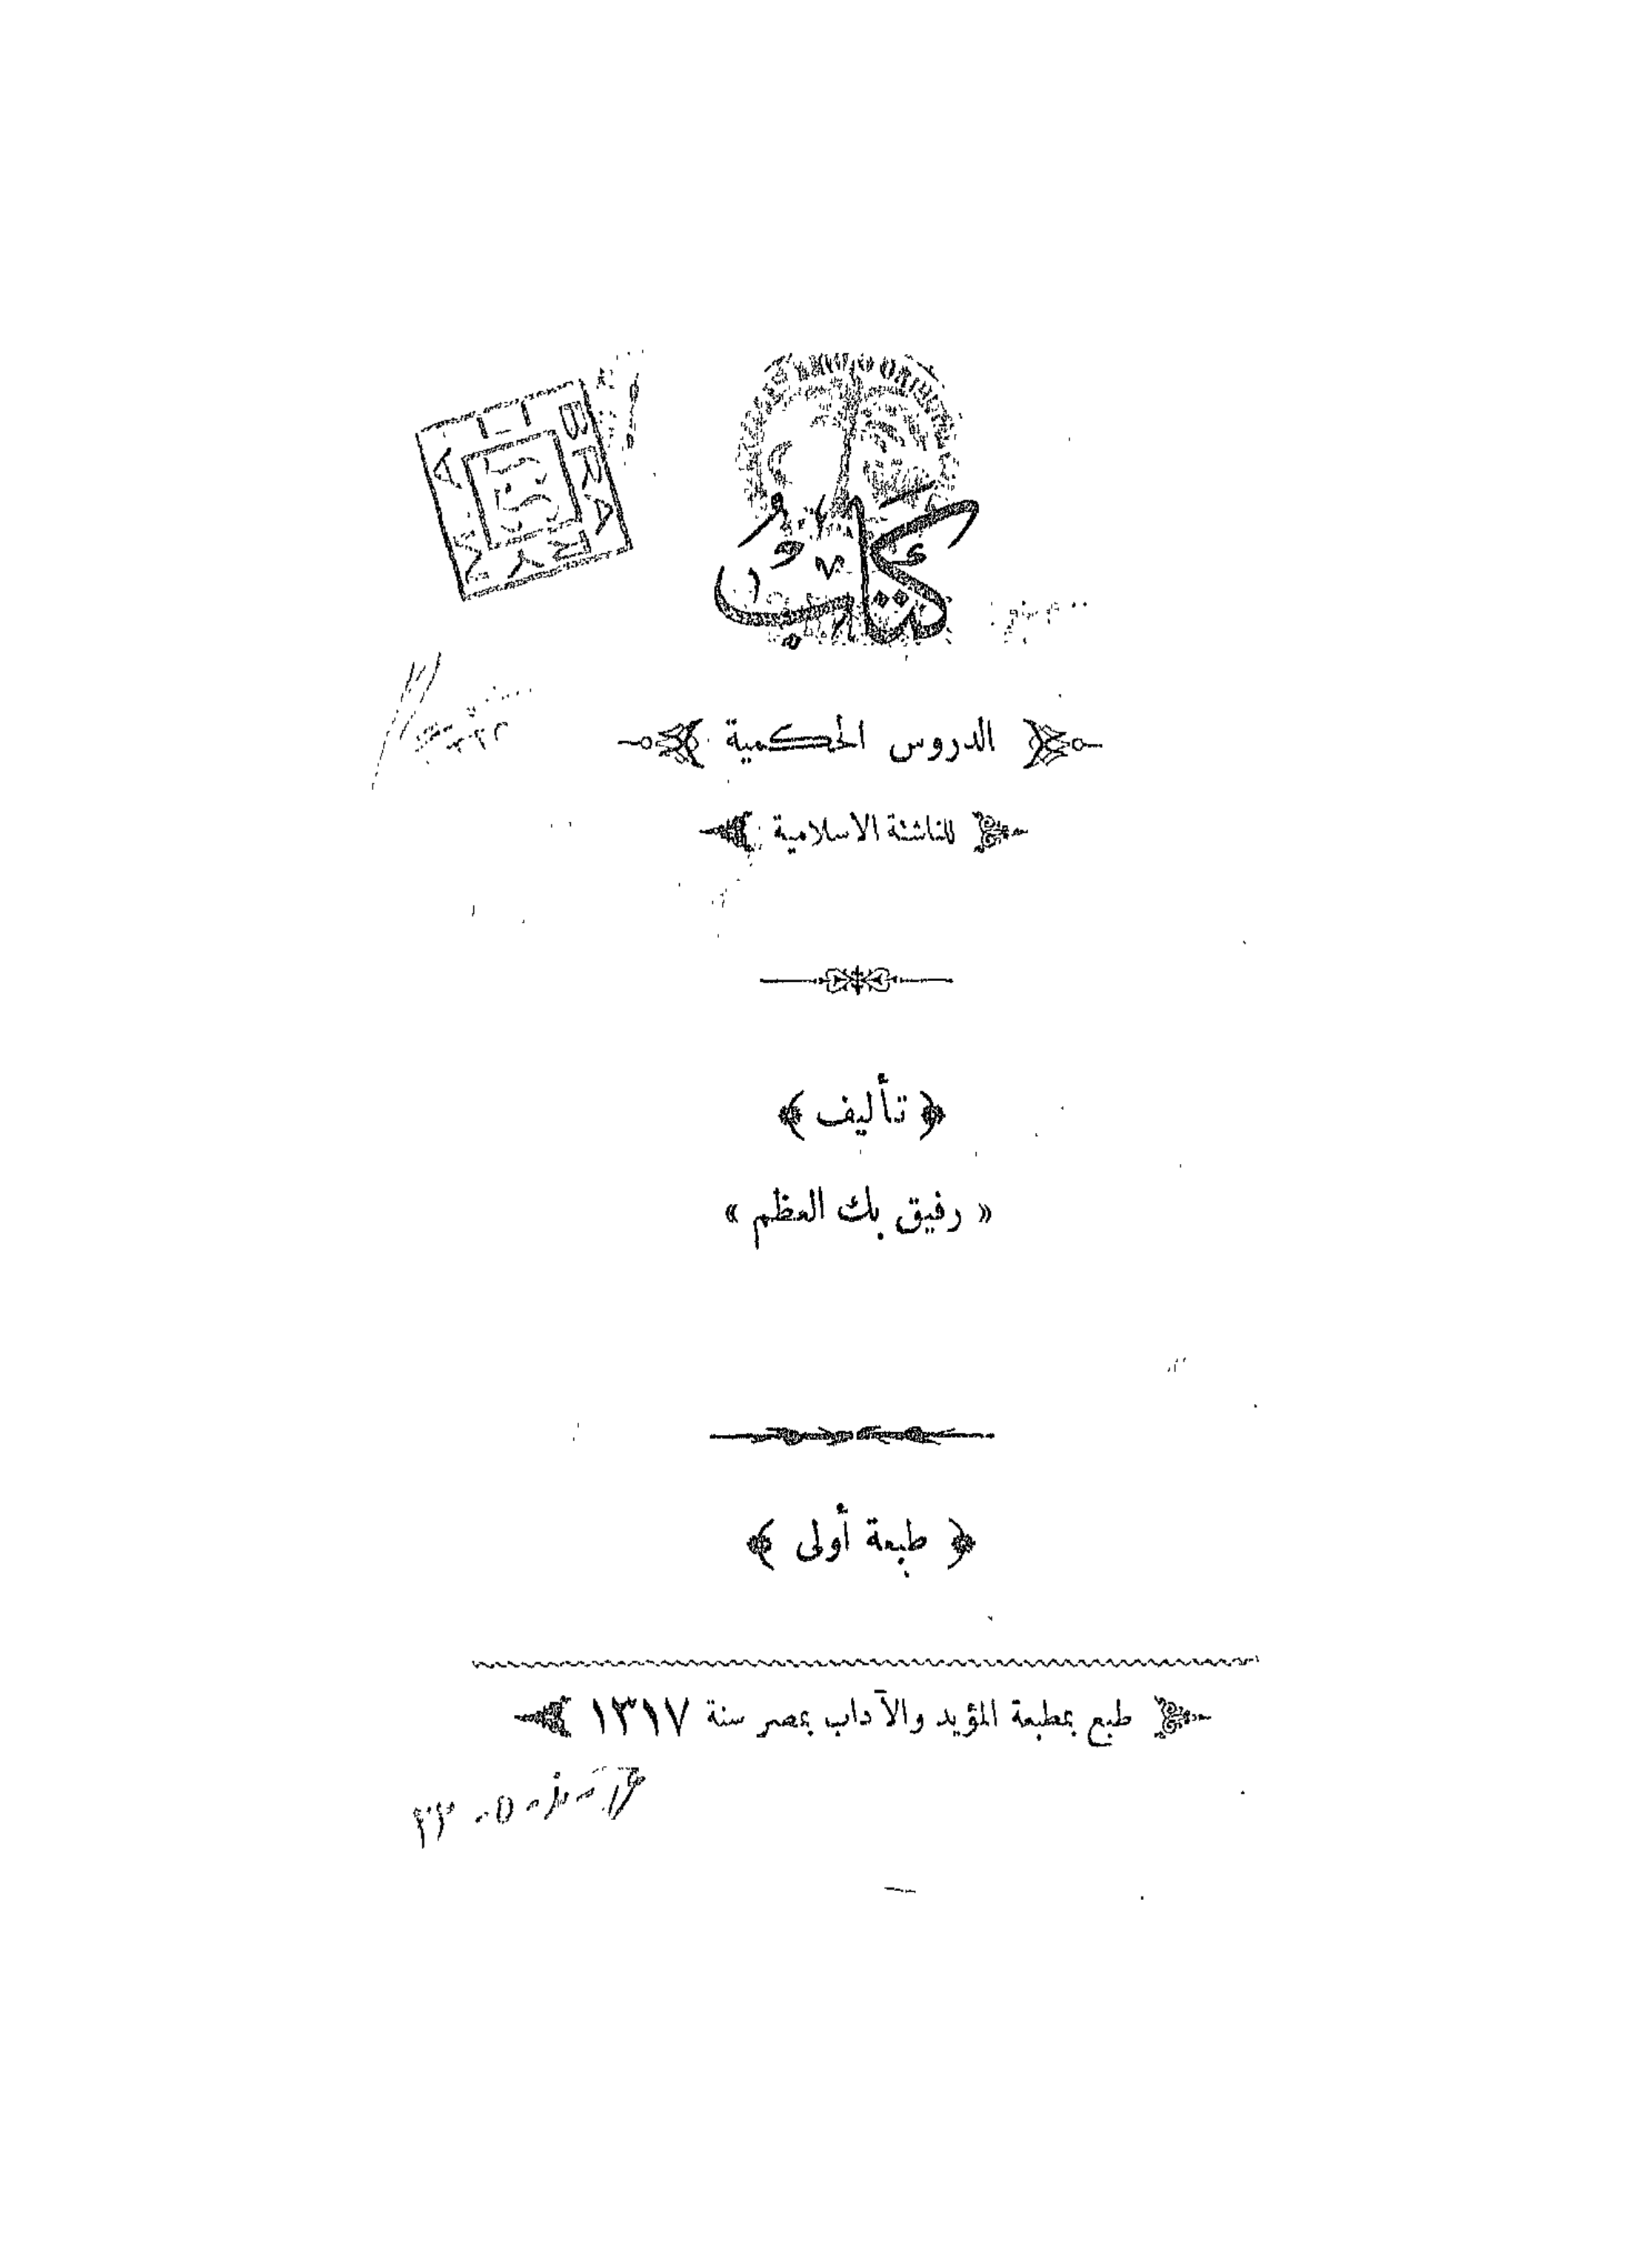 كتاب
الدروس الحكمية
للناشئة الاسلامية
﴿ تأليف ﴾
« رفيق بك العظم »
﴿ طبعة أولى ﴾
طبع بمطبعة المؤيد والآداب بمصر سنة ١٣١٧